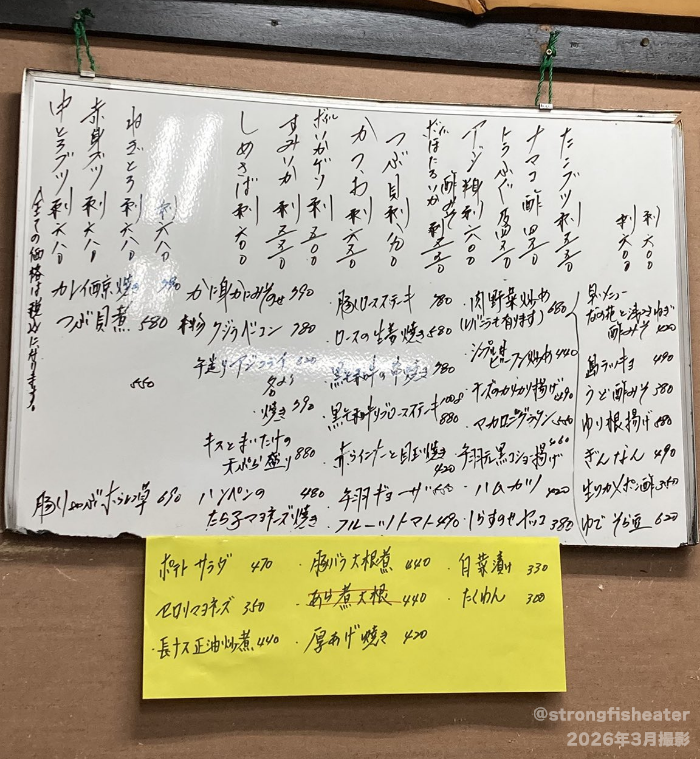 刺 六〇〇
刺 六〇〇
たこブツ刺 五五〇
ナマコ酢 四五〇
トラふぐ皮 四五〇
アジ 刺 六〇〇
ボイルほたるいか 酢みそ 刺 五五〇
つぶ貝 刺 八八〇
かつお 刺 六五〇
すみいか 刺 五五〇
しめさば 刺 六〇〇
刺 六八〇
ねぎとろ 刺 六八〇
赤身ブツ 刺 六八〇
中とろブツ 刺 六八〇
全ての価格は税込になります。
早いメニュー
ねぎ
酢みそ 420
島ラッキョ 490
うど酢みそ 380
ゆり根揚げ 580
ぎんなん 490
生ワカメポン酢 350
ゆでそら豆 620
・肉野菜炒め 680
(レバニラも有ります)
ビーフン炒め 440
・チーズのカリカリ揚げ 490
・マカロニグラタン 550
黒コショー揚げ 460
・ハムカツ 420
・しらすのせヤッコ 380
・豚ロースステーキ 780
・ロースの生姜焼き 580
・黒毛和牛の串焼き 980
・黒毛和牛リブロースステーキ 100g 880
・赤ウインナーと目玉焼き 420
ギョーザ 550
・フルーツトマト 490
かに身かにみそ 390
クジラベーコン 780
手造りアジフライ 620
焼き 390
キスとまいたけの
天ぷら盛り 880
ハンペンの 480
たら子マヨネーズ焼き
カレイ西京焼き 580
つぶ貝煮 580
550
690
ポテトサラダ 470
セロリマヨネーズ 350
・長ナス正油炒煮 440
・豚バラ大根煮 440
・あら煮大根 440
・厚あげ焼き 420
・白菜漬け 330
・たくわん 300
@strongfisheater
2026年3月撮影